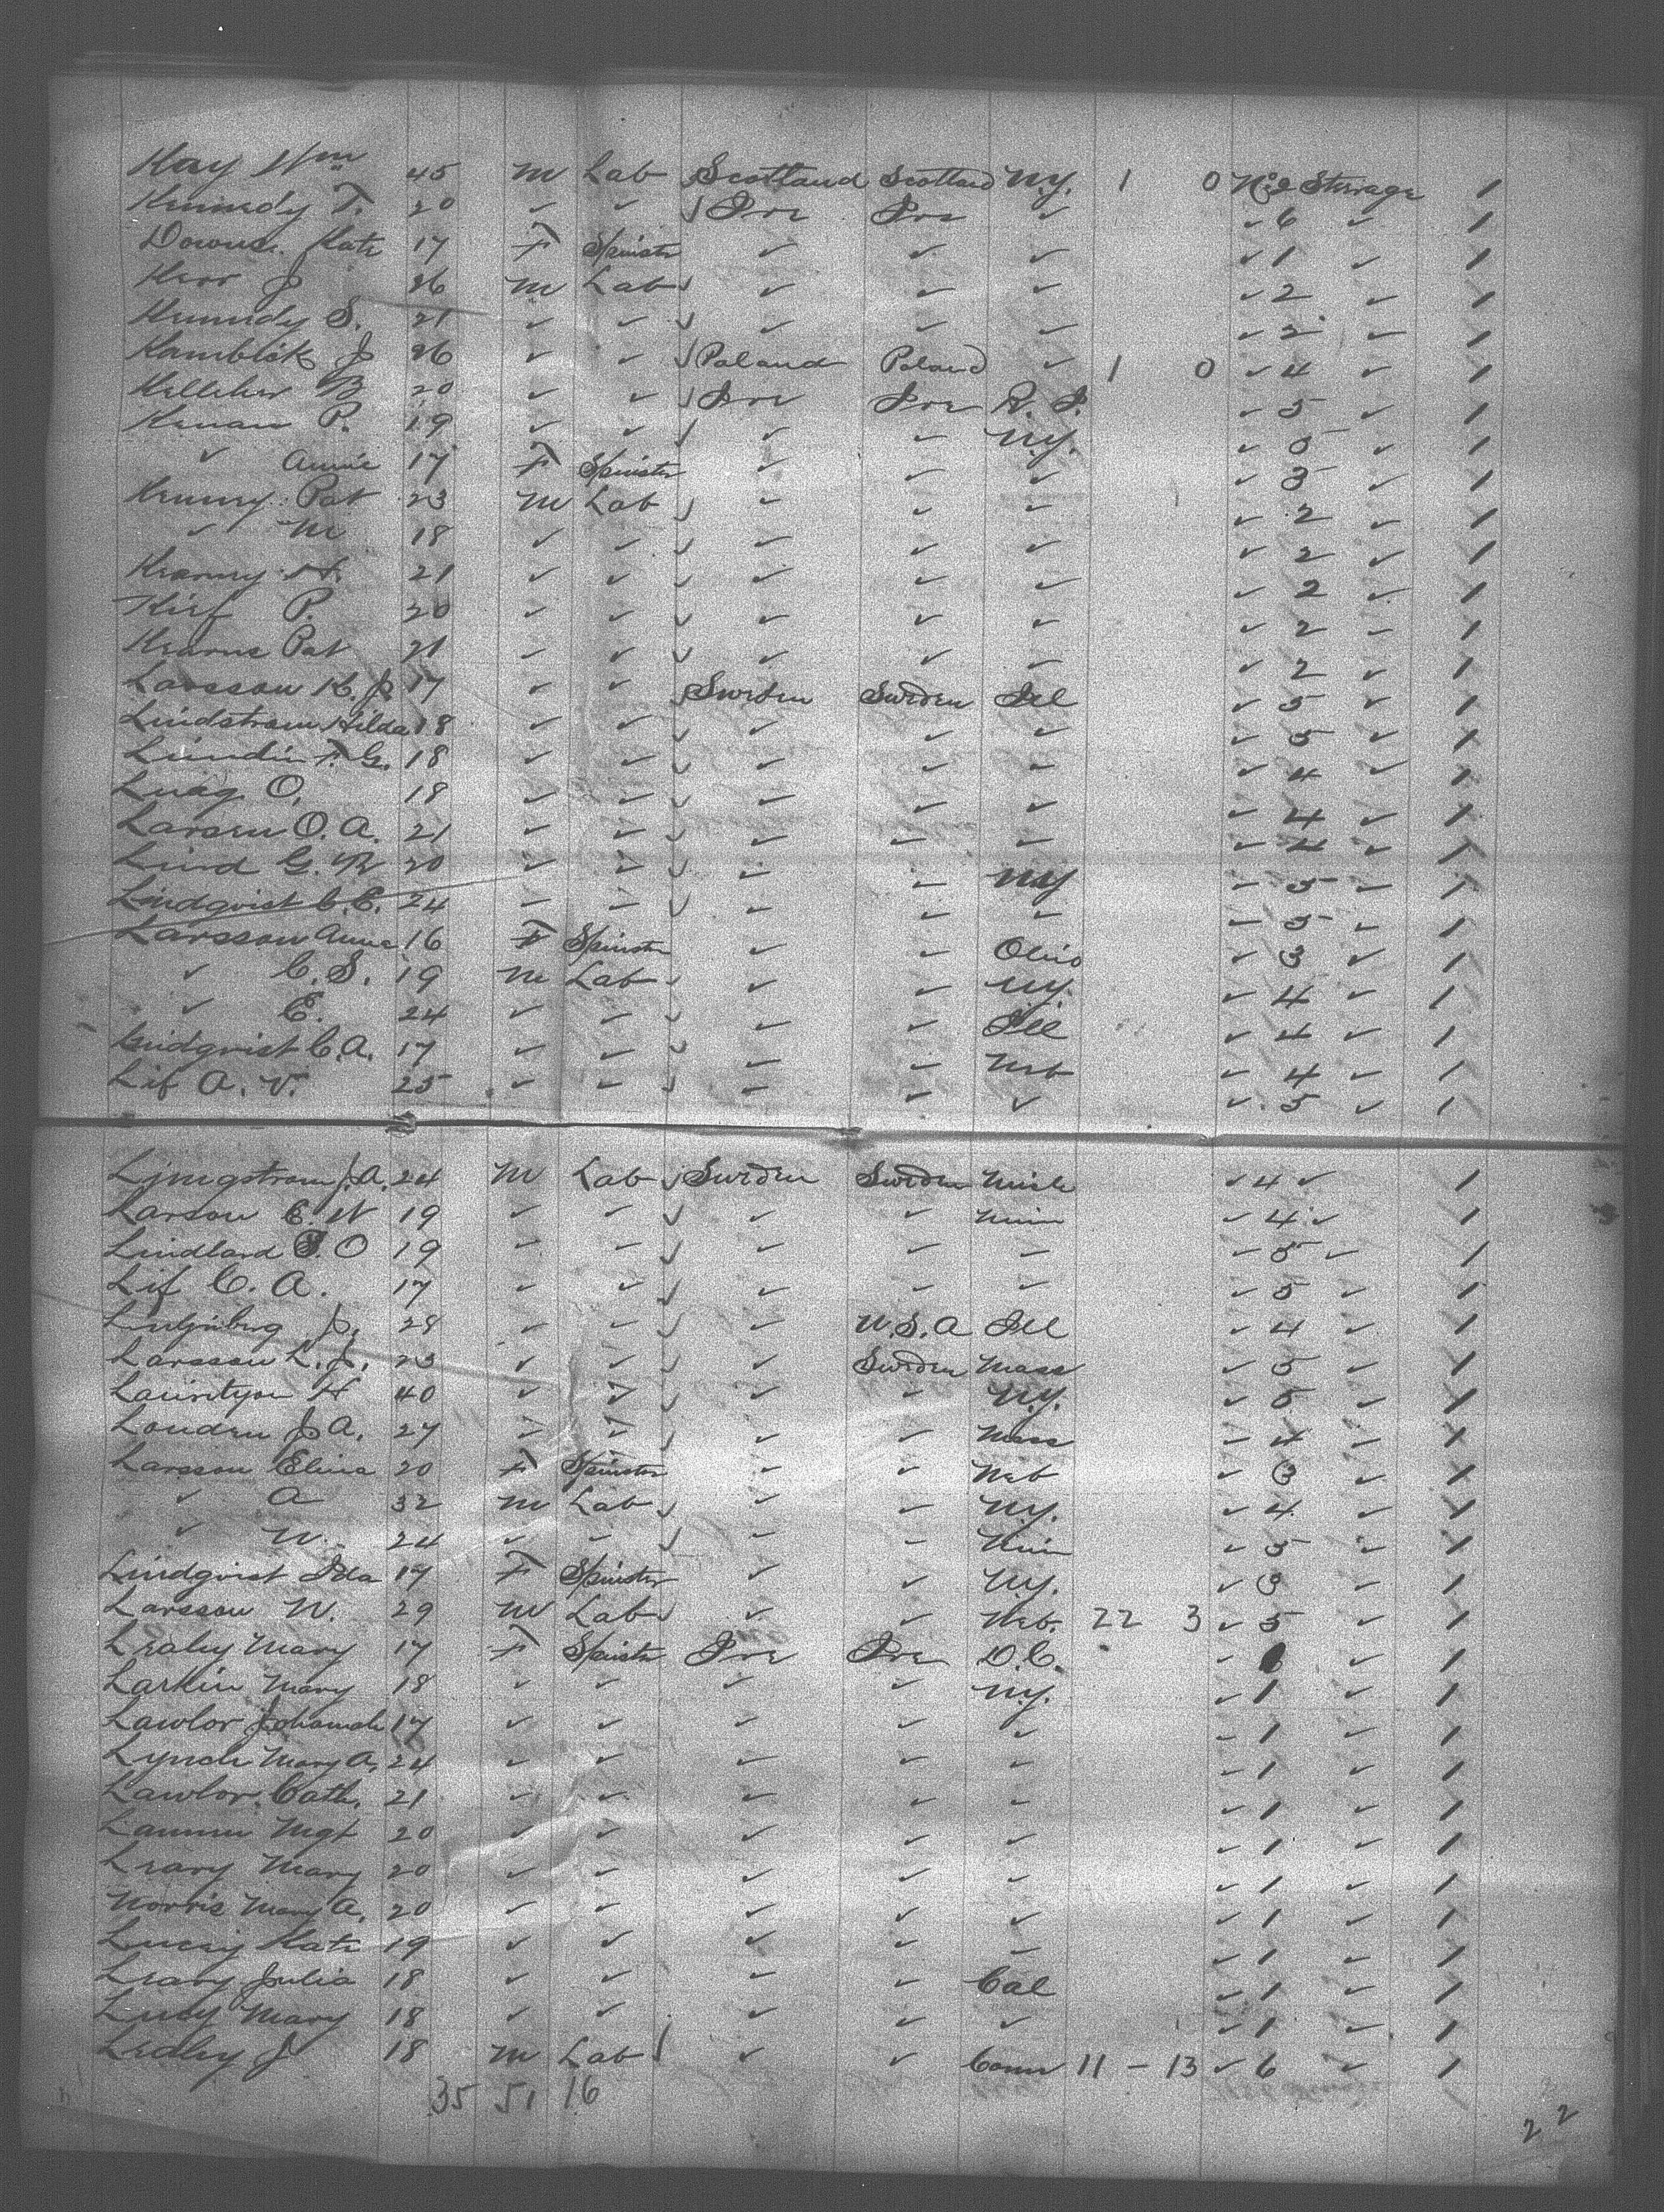 Kay Wm 45 M Lab Scotland Scotland N.Y. 1 0 No 2 Steerage 1
Kennedy T. 20 ✓ ✓ Ire Ire ✓ ✓ 6 ✓ 1
Downs Kate 17 F Spinster ✓ ✓ ✓ ✓ 1 ✓ 1
Kerr J 26 M Lab ✓ ✓ ✓ ✓ 2 ✓ 1
Kennedy S. 21 ✓ ✓ ✓ ✓ ✓ ✓ 2 ✓ 1
J 26 ✓ ✓ Poland Poland ✓ 1 0 ✓ 4 ✓ 1
Kelleher B 20 ✓ ✓ Ire Ire R. I. ✓ 5 ✓ 1
Kenan P. 19 ✓ ✓ ✓ ✓ N.Y. ✓ 5 ✓ 1
✓ Annie 17 F Spinster ✓ ✓ ✓ ✓ 3 ✓ 1
Pat 23 M Lab ✓ ✓ ✓ ✓ 2 ✓ 1
✓ M 18 ✓ ✓ ✓ ✓ ✓ ✓ 2 ✓ 1
H. 21 ✓ ✓ ✓ ✓ ✓ ✓ 2 ✓ 1
P. 20 ✓ ✓ ✓ ✓ ✓ ✓ 2 ✓ 1
Kearns Pat 21 ✓ ✓ ✓ ✓ ✓ ✓ 2 ✓ 1
Larsson K. J. 17 ✓ ✓ Sweden Sweden Ill ✓ 5 ✓ 1
Lindstrom Hilda 18 ✓ ✓ ✓ ✓ ✓ ✓ 5 ✓ 1
Lundin F. G. 18 ✓ ✓ ✓ ✓ ✓ ✓ 4 ✓ 1
O. 18 ✓ ✓ ✓ ✓ ✓ ✓ 4 ✓ 1
Larsen O. A. 21 ✓ ✓ ✓ ✓ ✓ ✓ 4 ✓ 1
Lind G. W 20 ✓ ✓ ✓ ✓ NY ✓ 5 ✓ 1
Lindqvist C. E. 24 ✓ ✓ ✓ ✓ ✓ ✓ 5 ✓ 1
Larsson Anna 16 F Spinster ✓ ✓ Ohio ✓ 3 ✓ 1
✓ C. S. 19 M Lab ✓ ✓ N.Y. ✓ 4 ✓ 1
✓ E. 24 ✓ ✓ ✓ ✓ Ill ✓ 4 ✓ 1
Lindqvist C. A. 17 ✓ ✓ ✓ ✓ Neb ✓ 4 ✓ 1
Lif A. V. 25 ✓ ✓ ✓ ✓ ✓ ✓ 5 ✓ 1
Ljungstrom J. A. 24 M Lab Sweden Sweden Mich ✓ 4 ✓ 1
Larson E. W 19 ✓ ✓ ✓ ✓ Minn ✓ 4 ✓ 1
Lindlard S. O 19 ✓ ✓ ✓ ✓ ✓ ✓ 5 ✓ 1
Lif C. A. 17 ✓ ✓ ✓ ✓ ✓ ✓ 5 ✓ 1
J. 28 ✓ ✓ ✓ U.S.A Ill ✓ 4 ✓ 1
Larsson L. J. 23 ✓ ✓ ✓ Sweden Mass ✓ 5 ✓ 1
H 40 ✓ ✓ ✓ ✓ N.Y. ✓ 5 ✓ 1
Londen J A. 27 ✓ ✓ ✓ ✓ Mass ✓ 4 ✓ 1
Larsson Elina 20 F Spinster ✓ ✓ Neb ✓ 3 ✓ 1
✓ A 32 M Lab ✓ ✓ N.Y. ✓ 4 ✓ 1
✓ W. 24 ✓ ✓ ✓ ✓ Minn ✓ 5 ✓ 1
Lindqvist Ida 17 F Spinster ✓ ✓ N.Y. ✓ 3 ✓ 1
Larsson N. 29 M Lab ✓ ✓ Neb. 22 3 ✓ 5 ✓ 1
Leahy Mary 17 F Spinster Ire Ire D.C. ✓ ✓ 1
Larkin Mary 18 ✓ ✓ ✓ ✓ N.Y. ✓ 1 ✓ 1
Lawlor Johannah 17 ✓ ✓ ✓ ✓ ✓ ✓ 1 ✓ 1
Lynch Mary A. 24 ✓ ✓ ✓ ✓ ✓ ✓ 1 ✓ 1
Lawlor Cath. 21 ✓ ✓ ✓ ✓ ✓ ✓ 1 ✓ 1
Mgt 20 ✓ ✓ ✓ ✓ ✓ ✓ 1 ✓ 1
Leary Mary 20 ✓ ✓ ✓ ✓ ✓ ✓ 1 ✓ 1
Norris Mary A. 20 ✓ ✓ ✓ ✓ ✓ ✓ 1 ✓ 1
Lucey Kate 19 ✓ ✓ ✓ ✓ ✓ ✓ 1 ✓ 1
Leary Julia 18 ✓ ✓ ✓ ✓ Cal ✓ 1 ✓ 1
Lucy Mary 18 ✓ ✓ ✓ ✓ ✓ ✓ 1 ✓ 1
Ledley J 18 M Lab ✓ ✓ Conn 11 - 13 ✓ 6 ✓ 1
35 51 16
22